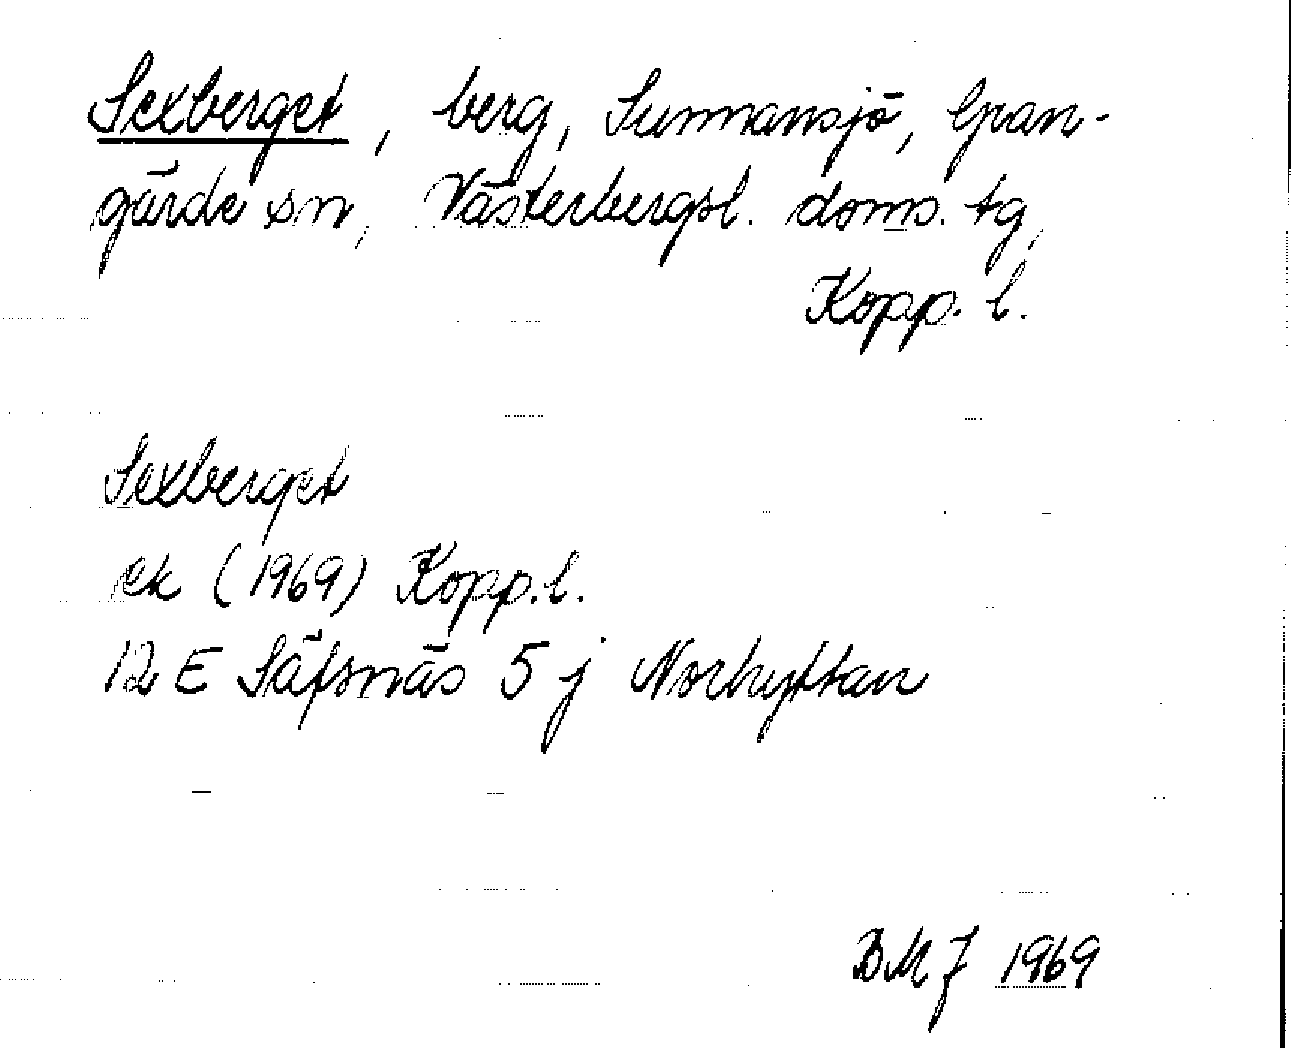 Sexberget, berg, Sunnansjö, Gran-
gärde sn, Västerbergsl. doms. tg,
Kopp. l.
Sexberget
ek (1969) Kopp. l.
12 E Säfsnäs 5 j Norhyttan
BMJ 1969